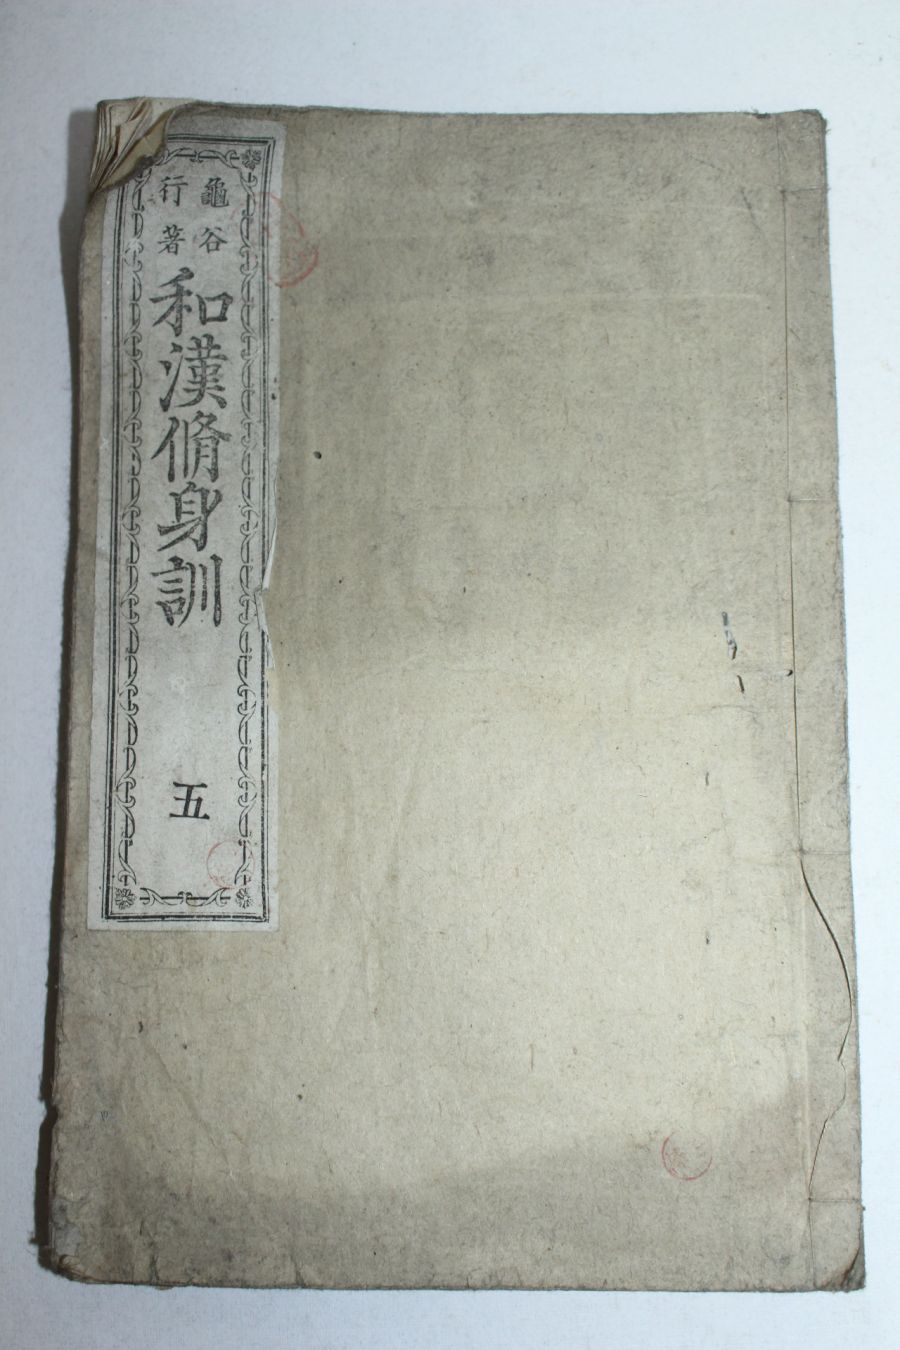 龜谷
行著
和漢脩身訓
五